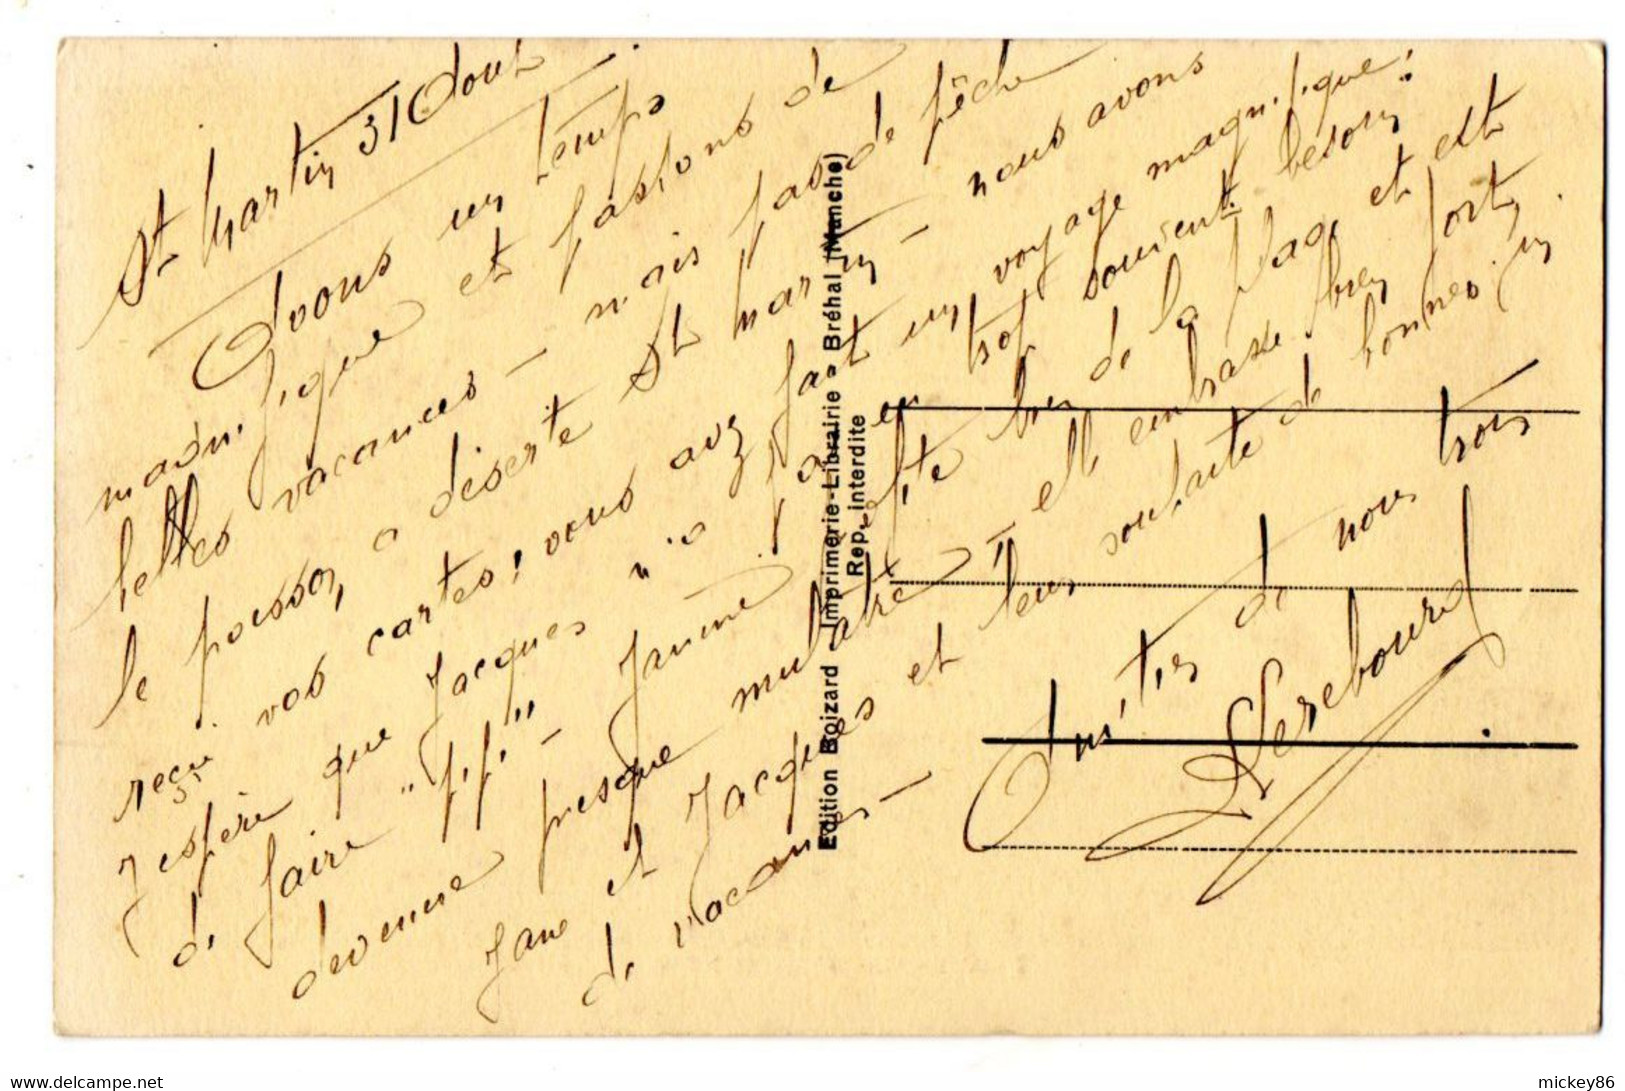 St Martin 31 Aout
Avons un temps
magnifique et passons de
belles vacances - mais pas de pêche
le poisson a déserté St Martin - nous avons
reçu vos cartes ! vous avez fait un voyage magnifique !
J'espère que Jacques n'a pas eu trop souvent besoin
de faire "pipi" - Janine profite bien de la plage et est
devenue presque mulâtre - elle embrasse bien fort
Jane et Jacques et leur souhaite de bonnes fin
de vacances -
Amitiés de nous trois
Lerebourd
Edition Boizard Imprimerie-Librairie - Bréhal (Manche)
Rep. interdite
delcampe.net
mickey86